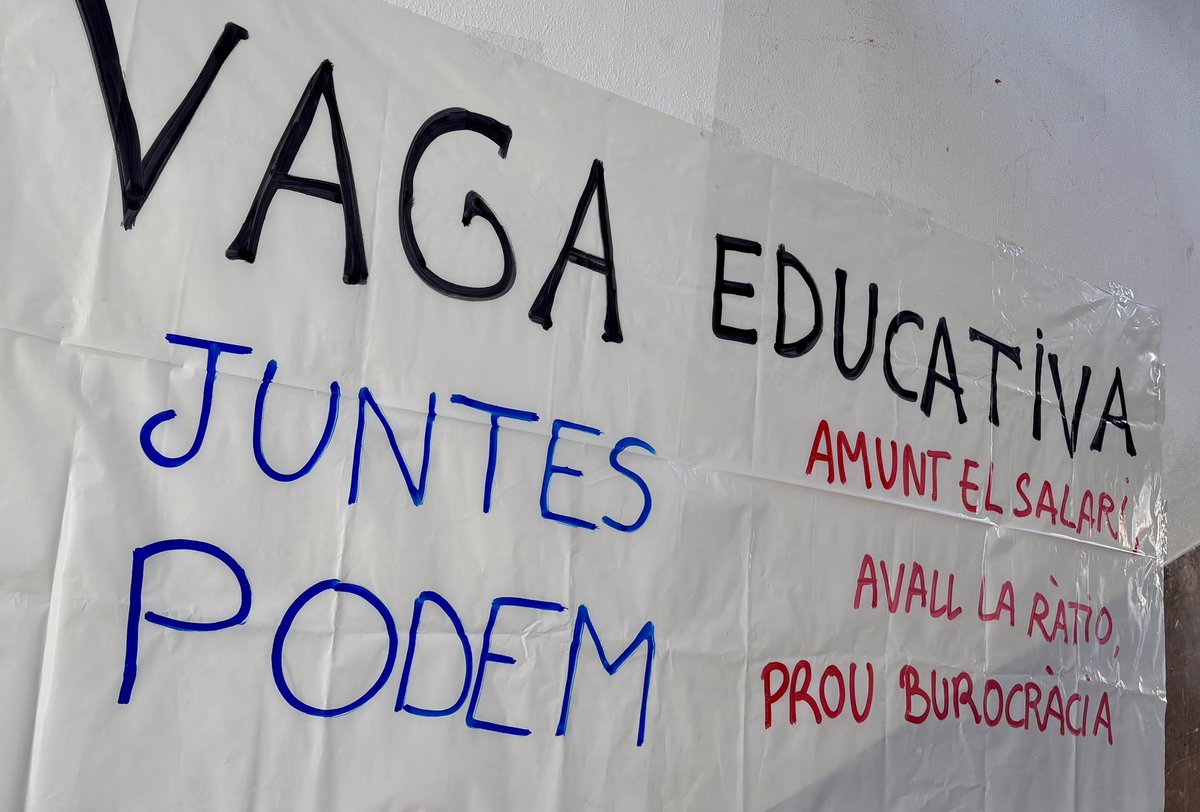 VAGA EDUCATIVA
JUNTES
PODEM
AMUNT EL SALARI,
AVALL LA RÀTIO,
PROU BUROCRÀCIA